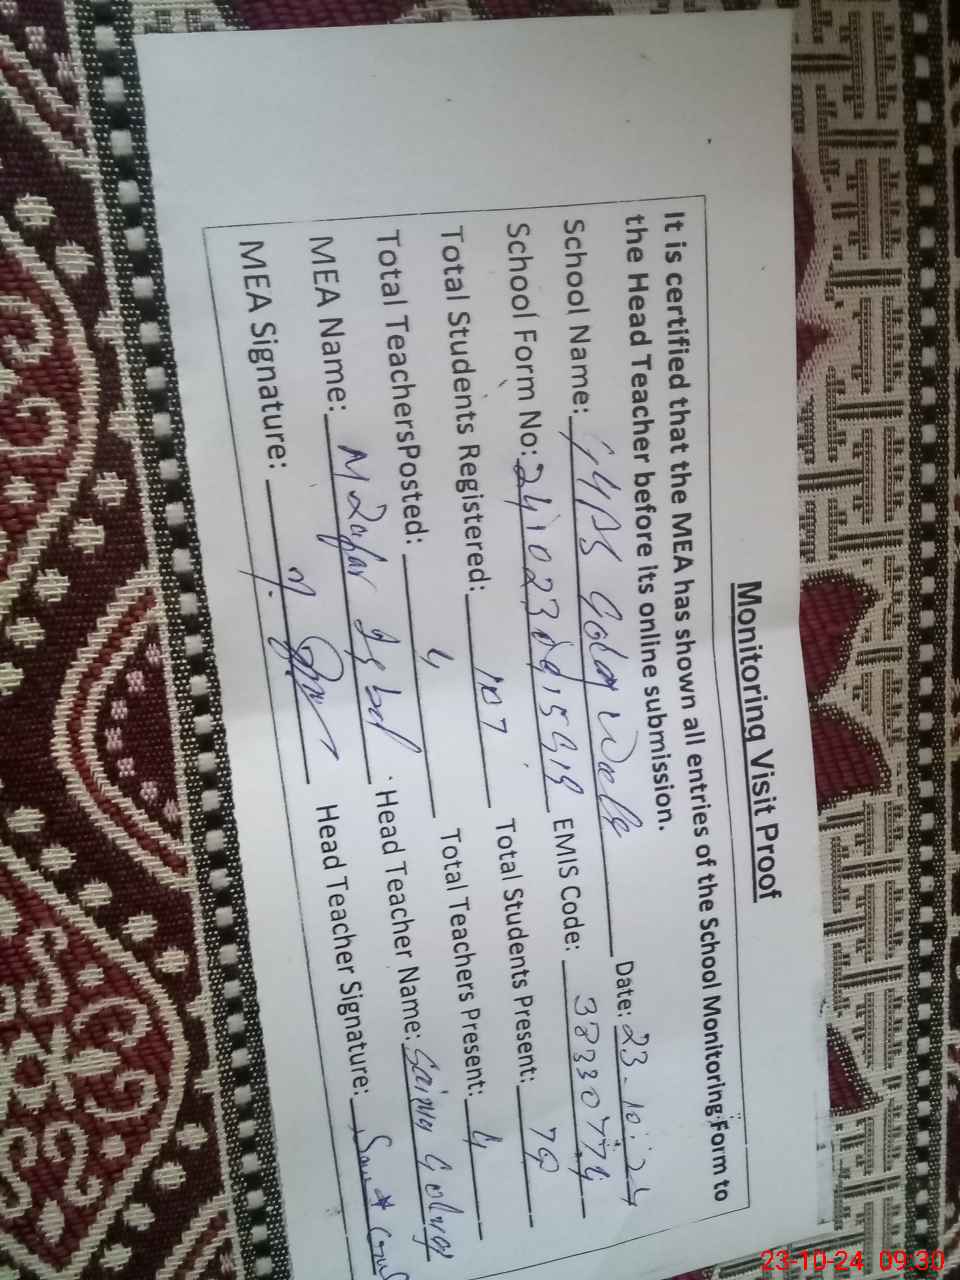 Monitoring Visit Proof
It is certified that the MEA has shown all entries of the School Monitoring Form to
the Head Teacher before its online submission.
School Name: Date: 23-10-24
School Form No: EMIS Code:
Total Students Registered: 107 Total Students Present:
Total TeachersPosted: 4 Total Teachers Present: 4
MEA Name: M Zafar Iqbal Head Teacher Name: Saima
MEA Signature: Head Teacher Signature:
23-10-24 09:30